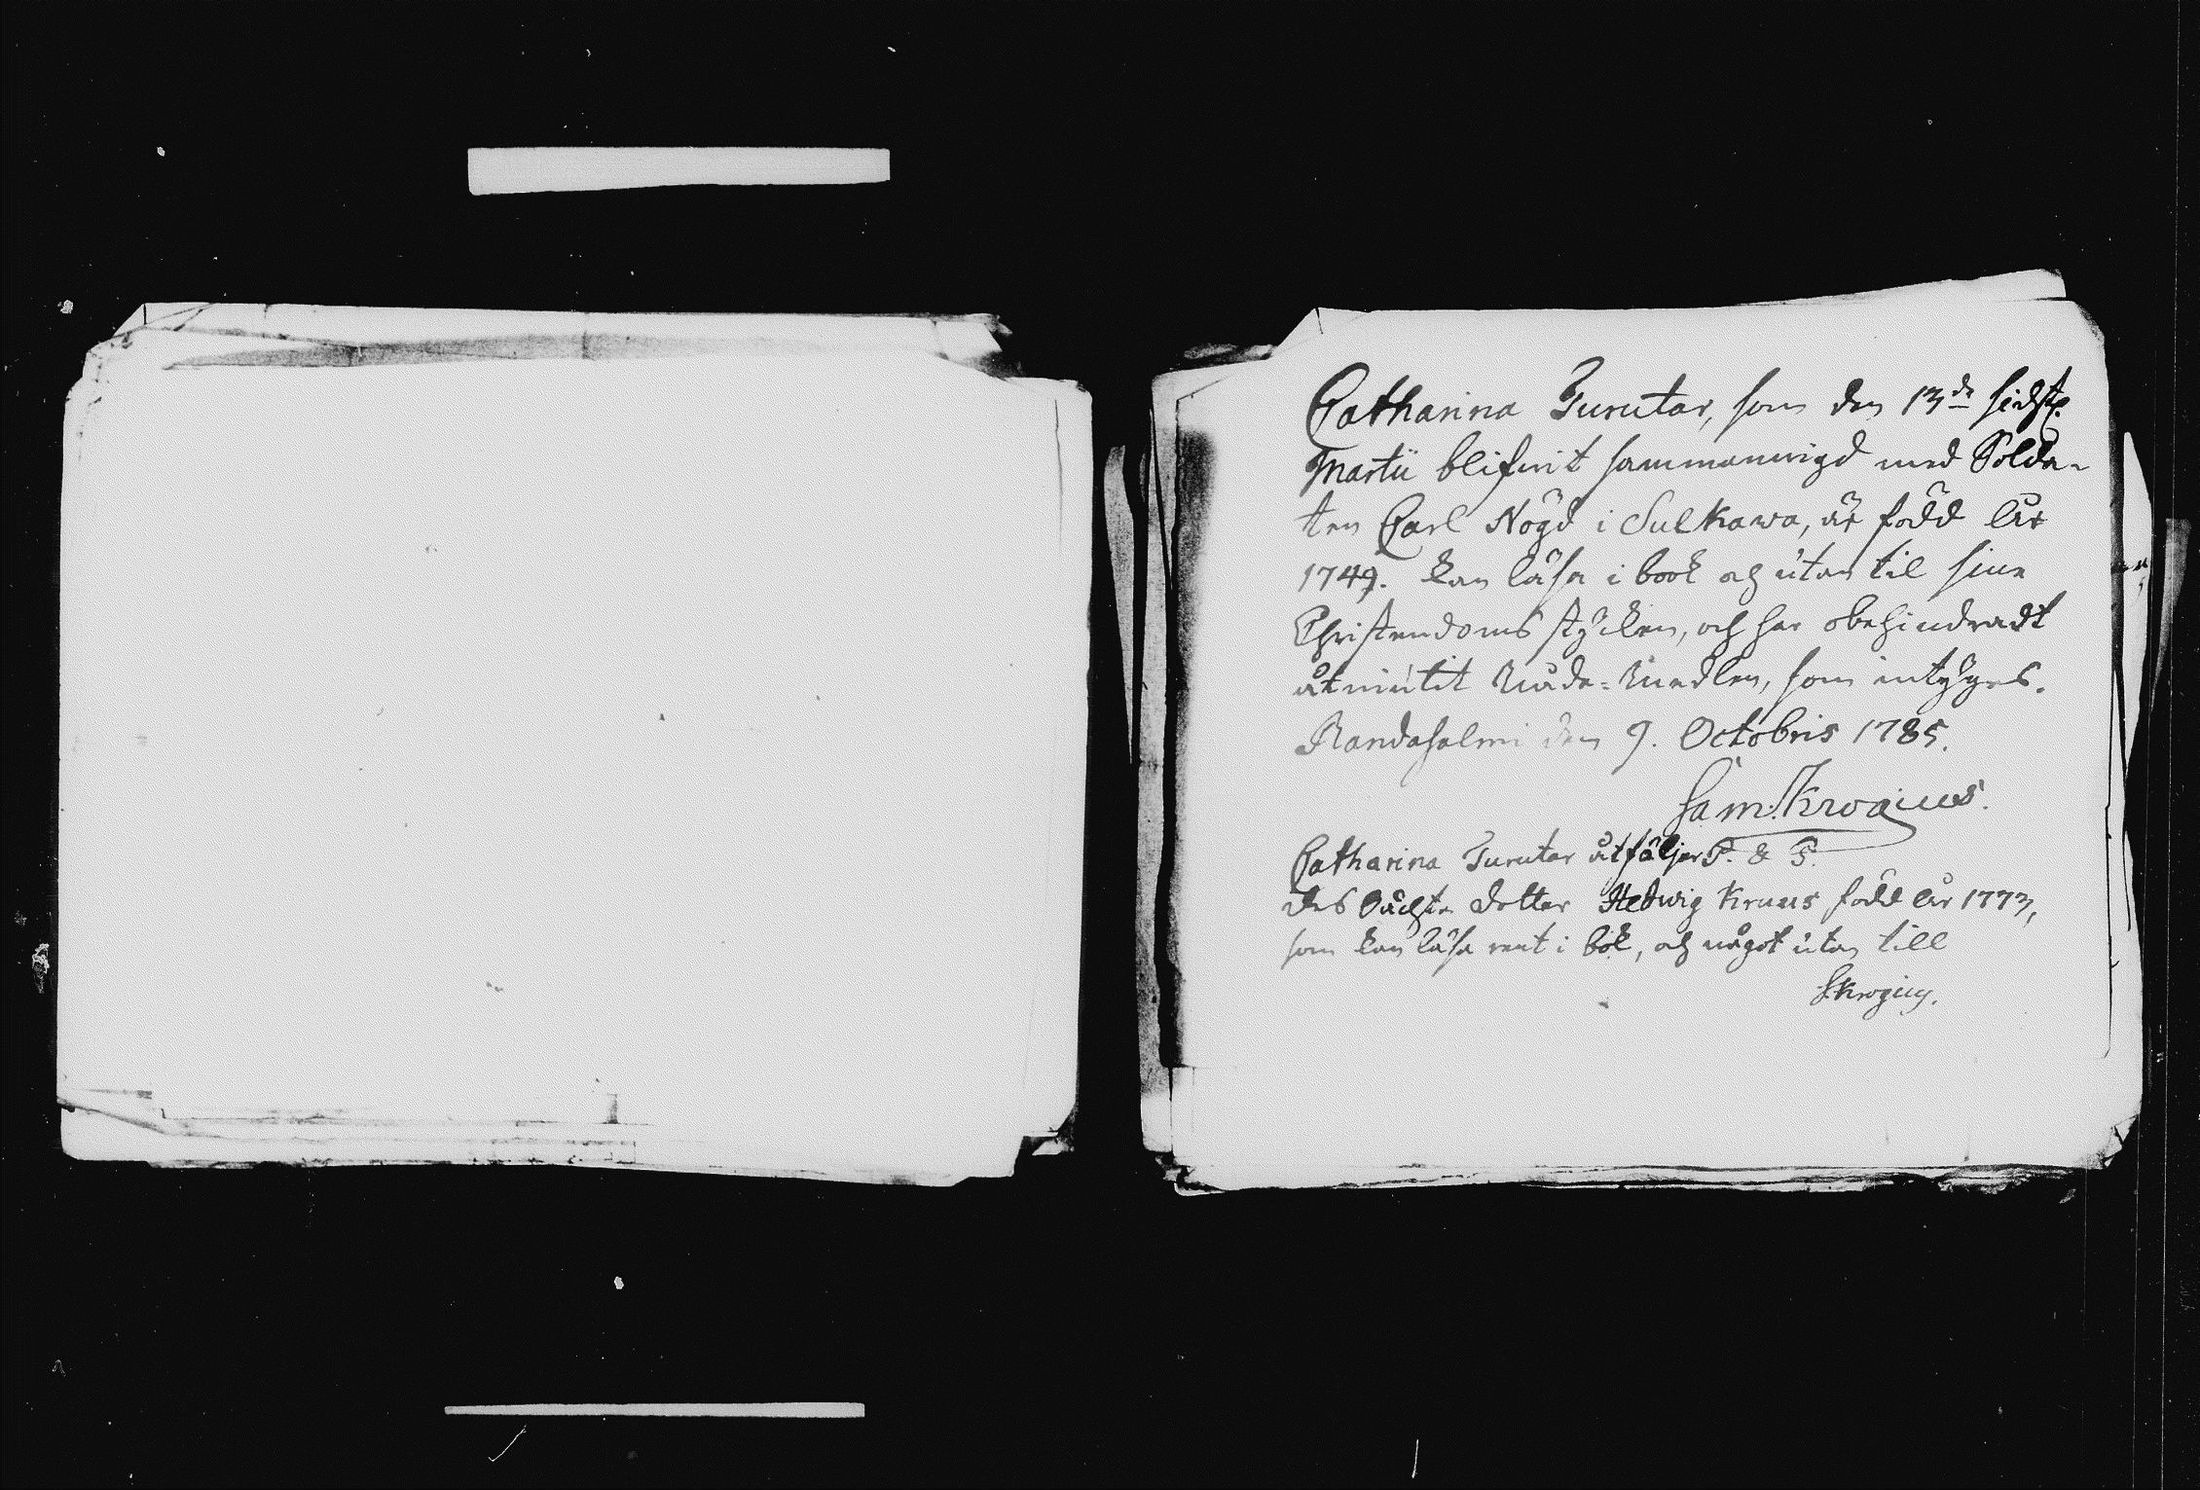 Catharina Turutar, som den 13de sidstl.
Martii blifwit sammanwigd med Solda-
ten Carl Nögd i Sulkawa, är född år
1749. kan läsa i book och utan til sine
Christendoms stycken, och har obehindradt
åtniutit Nåde-Medlen, som intyges.
Randasalmi den 9. Octobris 1785.
Sam: Krogius.
Catharina Turutar åtföljer
des dotter Hedwig Kruus född år 1773,
som kan läsa rent i bok, och något utan till
S. Krogius.